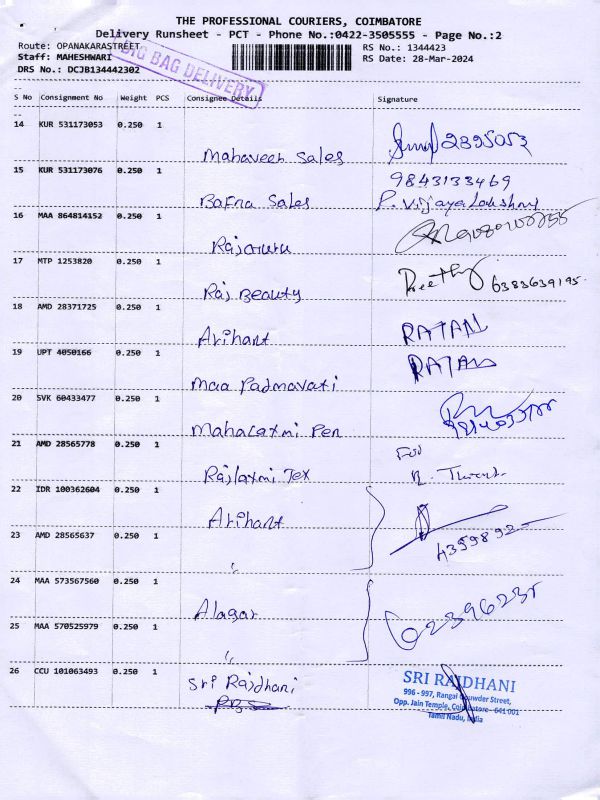 THE PROFESSIONAL COURIERS, COIMBATORE
Delivery Runsheet - PCT - Phone No.:0422-3505555 - Page No.:2
Route: OPANAKARASTREET
RS No.: 1344423
Staff: MAHESHWARI
RS Date: 28-Mar-2024
DRS No.: DCJB134442302
BIG BAG DELIVERY
S No Consignment No Weight PCS Consignee Details Signature
14 KUR 531173053 0.250 1
Mahaveer Sales 2895053
15 KUR 531173076 0.250 1
9843133469
Bafna Sales P. Vijaya Lakshmi
16 MAA 864814152 0.250 1
Rajguru
17 MTP 1253820 0.250 1
Raj Beauty Preethy 6383639195
18 AMD 28371725 0.250 1
Arihant RATAN
19 UPT 4050166 0.250 1
Maa Padmavati RATAN
20 SVK 60433477 0.250 1
Mahalaxmi Pen
21 AMD 28565778 0.250 1
For
Rajlaxmi Tex
22 IDR 100362604 0.250 1
Arihant
23 AMD 28565637 0.250 1
"
4359892
24 MAA 573567560 0.250 1
Alagar
25 MAA 570525979 0.250 1
"
26 CCU 101063493 0.250 1
Sri Rajdhani
SRI RAJDHANI
996 - 997, Rangai Gouwder Street,
Opp. Jain Temple, Coimbatore - 641 001
Tamil Nadu, India